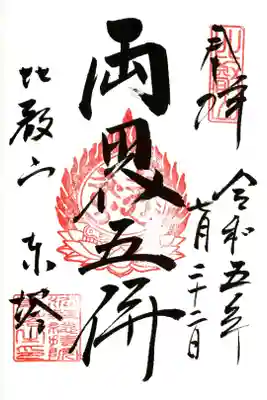 奉拝
令和五年
七月二十二日
両界五佛
比叡山 東塔